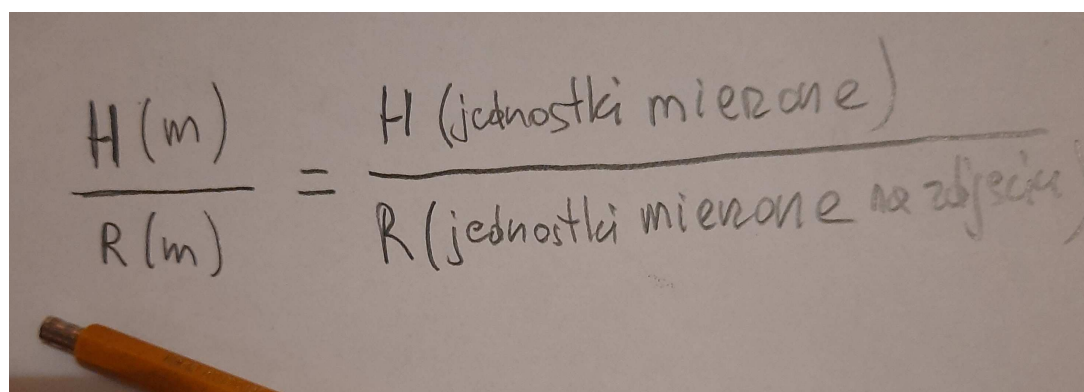 H (m) = H (jednostki mierzone)
R (m) R (jednostki mierzone na zdjęciu)